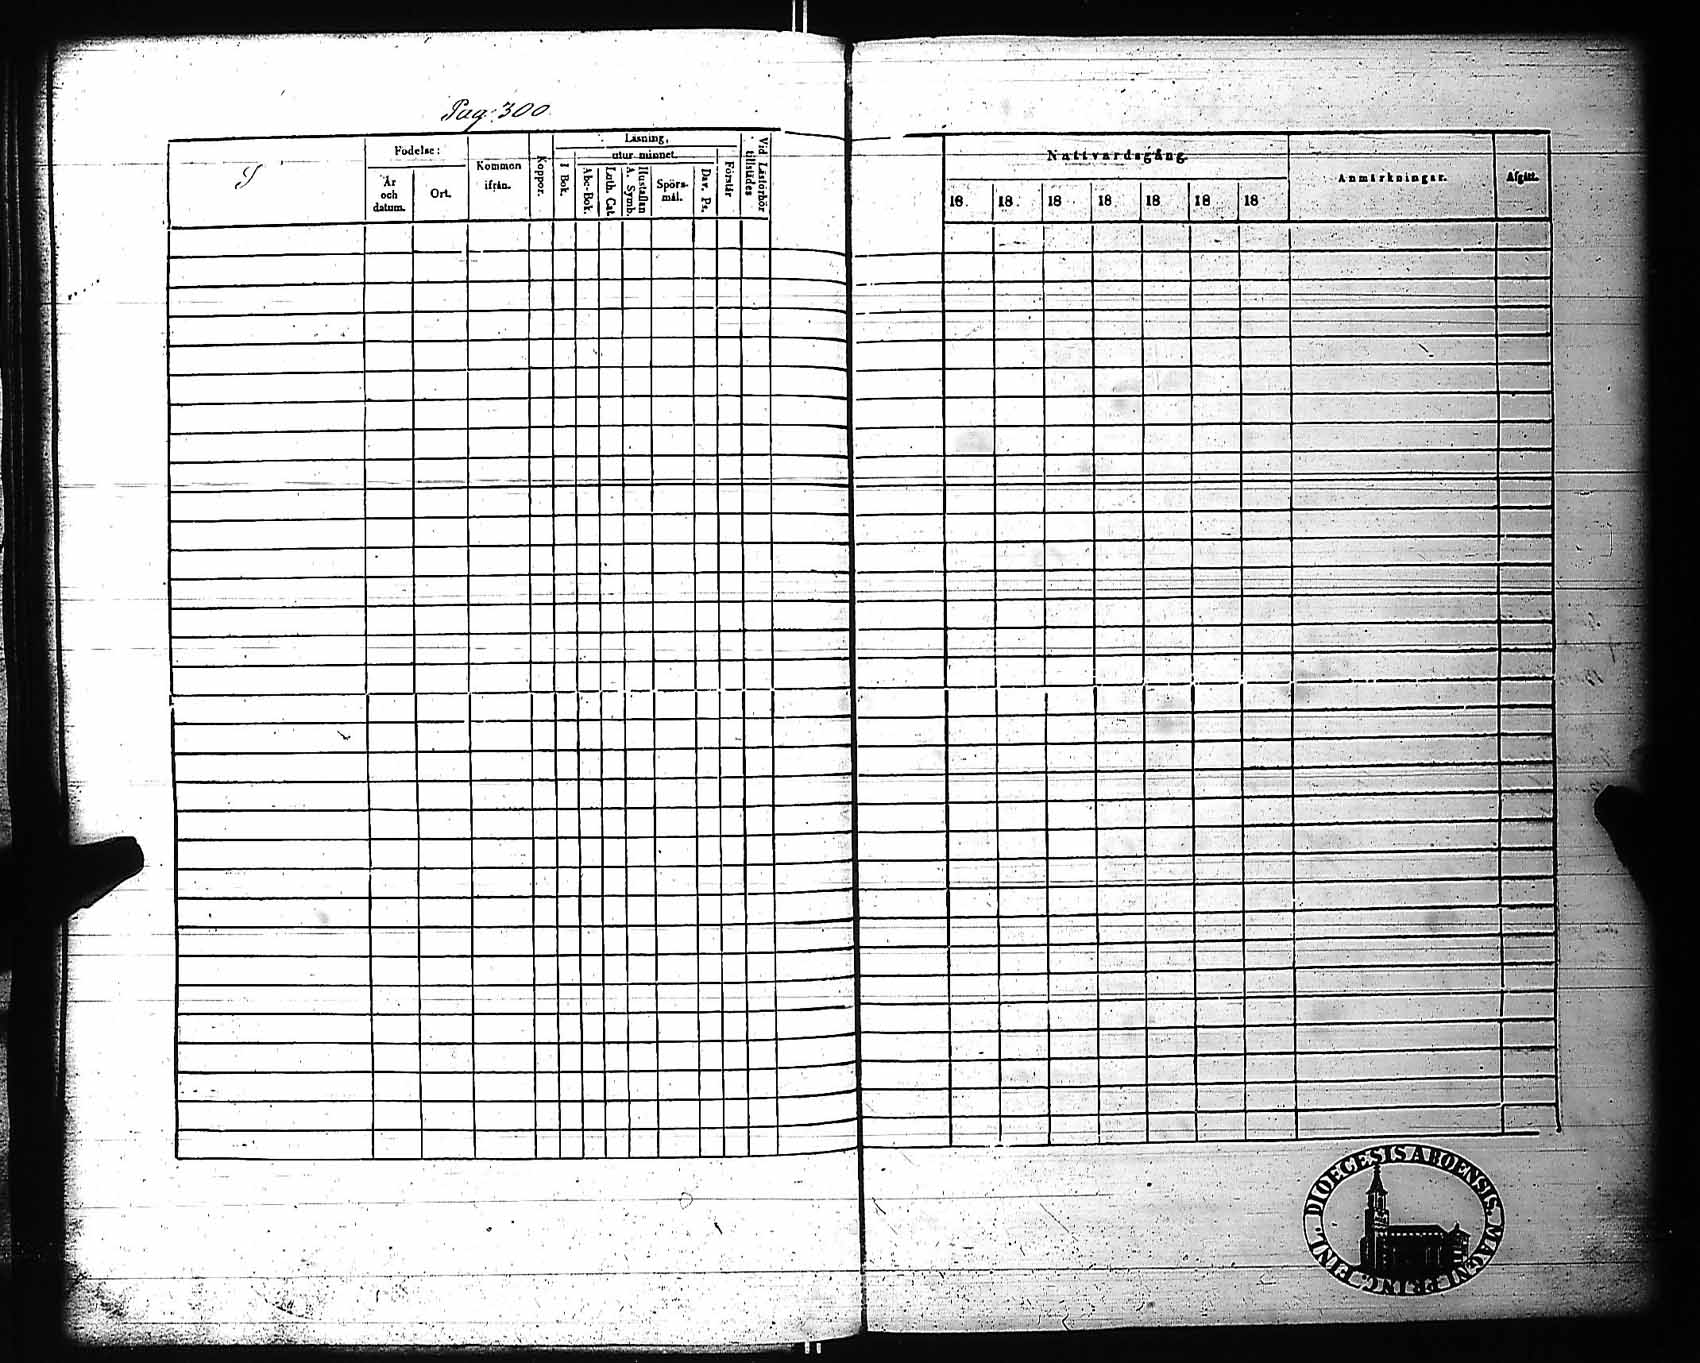 Pag. 300
Födelse:
År och datum.
Ort.
Kommen ifrån.
Koppor.
Läsning,
I Bok.
utur minnet.
Abc-Bok.
Luth. Cat.
Hustaflan A. Symb.
Spörsmål.
Dav. Ps.
Förstår
Vid Läsförhör tillstädes
Nattvardsgång.
18 18 18 18 18 18 18
Anmärkningar.
Afgått.
DIOECESIS ABOENSIS. MAGNI PRINC. FINL.